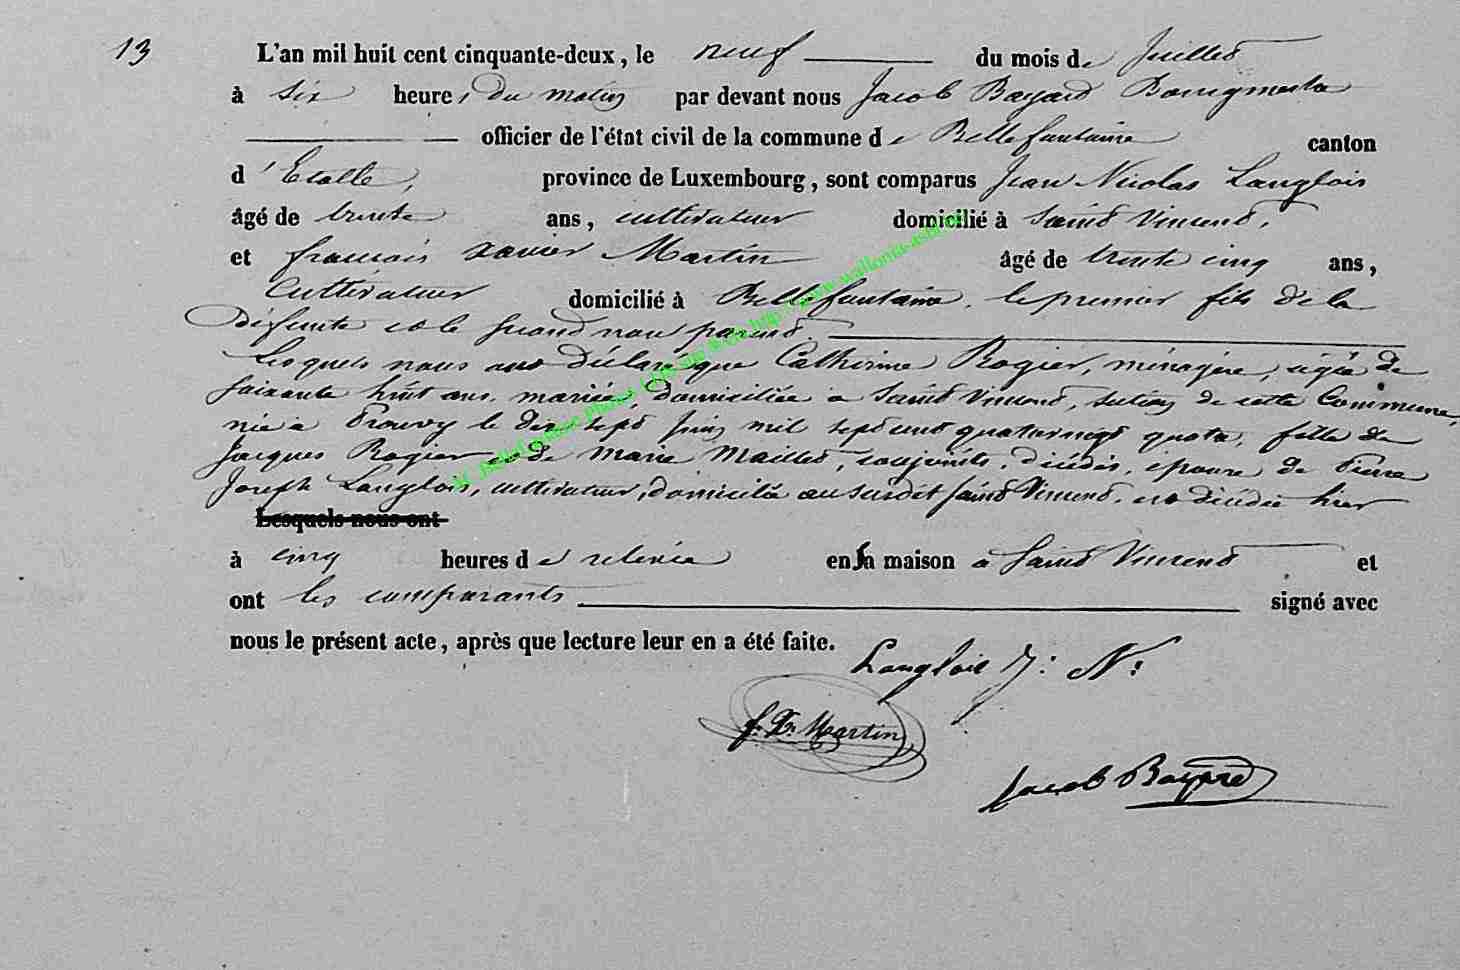 13
L'an mil huit cent cinquante-deux, le neuf du mois de Juillet
à six heures du matin par devant nous Jacob Bayard Bourgmestre
officier de l'état civil de la commune de Bellefontaine canton
d'Etalle, province de Luxembourg, sont comparus Jean Nicolas Langlois
âgé de trente ans, cultivateur domicilié à Saint Vincent,
et françois xavier Martin âgé de trente cinq ans,
Cultivateur domicilié à Bellefontaine, le premier fils de la
Défunte et le second non parent.
Lesquels nous ont Déclaré que Catherine Rogier, ménagère, agée de
soixante huit ans, mariée, domiciliée à Saint Vincent, section de cette Commune,
née à Frouvy le dix sept Juin mil sept cent quatre vingt quatre, fille de
Jacques Rogier et de Marie Maillet, conjoints, décédés, épouse de Pierre
Joseph Langlois, cultivateur, domicilié au susdit Saint Vincent, est décédée hier
Lesquels nous ont
à cinq heures de relevée en sa maison à Saint Vincent et
ont les comparants signé avec
nous le présent acte, après que lecture leur en a été faite.
Langlois J: N:
f. X. Martin
Jacob Bayard
http://www.wallonia-asbl.be